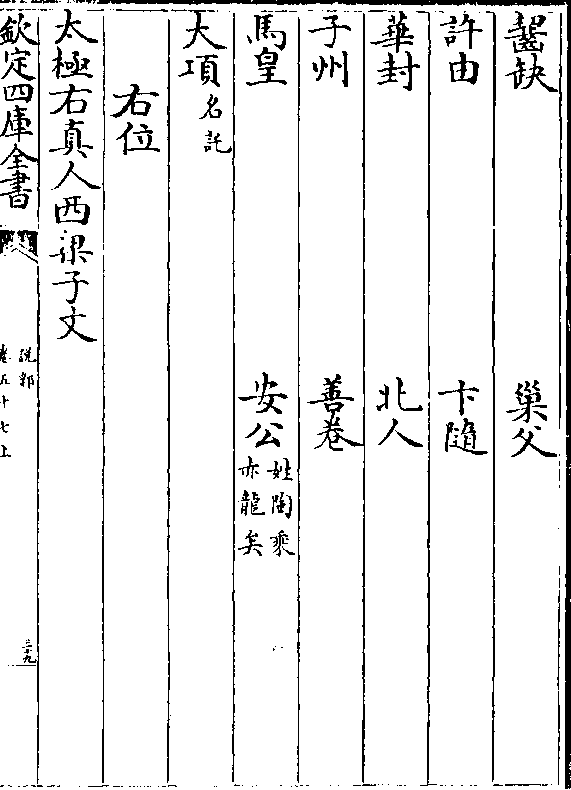 齧缺　巢父
許由　卞隨
華封　北人
子州　善卷
馬皇　安公姓陶乘亦龍矣
大項名託
右位
太極右真人西梁子文
欽定四庫全書
說郛
卷五十七上
三十九